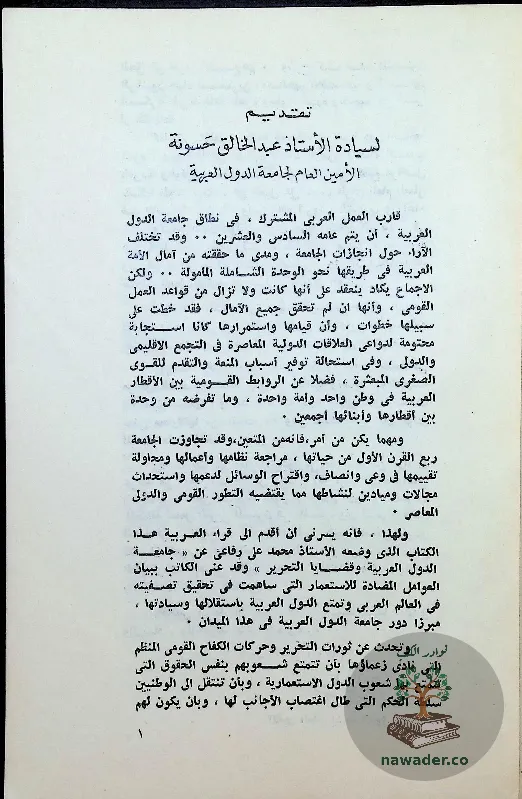 تقديم
لسيادة الأستاذ عبد الخالق حسونة
الأمين العام لجامعة الدول العربية
قارب العمل العربى المشترك ، فى نطاق جامعة الدول
العربية ، أن يتم عامه السادس والعشرين ٠٠ وقد تختلف
الآراء حول انجازات الجامعة ، ومدى ما حققته من آمال الأمة
العربية فى طريقها نحو الوحدة الشاملة المأمولة ٠٠ ولكن
الاجماع يكاد ينعقد على أنها كانت ولا تزال من قواعد العمل
القومى ، وأنها ان لم تحقق جميع الآمال ، فقد خطت على
سبيلها خطوات ، وأن قيامها واستمرارها كانا استجابة
محتومة لدواعى العلاقات الدولية المعاصرة فى التجمع الاقليمى
والدولى ، وفى استحالة توفير أسباب المنعة والتقدم للقوى
الصغرى المبعثرة ، فضلا عن الروابط القومية بين الأقطار
العربية فى وطن واحد وأمة واحدة ، وما تفرضه من وحدة
بين أقطارها وأبنائها أجمعين ٠
ومهما يكن من أمر،فانه من المتعين،وقد تجاوزت الجامعة
ربع القرن الأول من حياتها ، مراجعة نظامها وأعمالها ومحاولة
تقييمها فى وعى وانصاف، واقتراح الوسائل لدعمها واستحداث
مجالات وميادين لنشاطها مما يقتضيه التطور القومى والدولى
المعاصر ٠
ولهذا ، فانه يسرنى أن أقدم الى قراء العربية هذا
الكتاب الذى وضعه الأستاذ محمد على رفاعى عن « جامعة
الدول العربية وقضايا التحرير » وقد عنى الكاتب ببيان
العوامل المضادة للاستعمار التى ساهمت فى تحقيق تصفيته
فى العالم العربى وتمتع الدول العربية باستقلالها وسيادتها ،
مبرزا دور جامعة الدول العربية فى هذا الميدان ٠
وتحدث عن ثورات التحرير وحركات الكفاح القومى المنظم
التى نادى زعماؤها بأن تتمتع شعوبهم بنفس الحقوق التى
شعوب الدول الاستعمارية ، وبأن تنتقل الى الوطنيين
سلطة الحكم التى طال اغتصاب الأجانب لها ، وبأن يكون لهم
١
نوادر الكتب
nawader.co